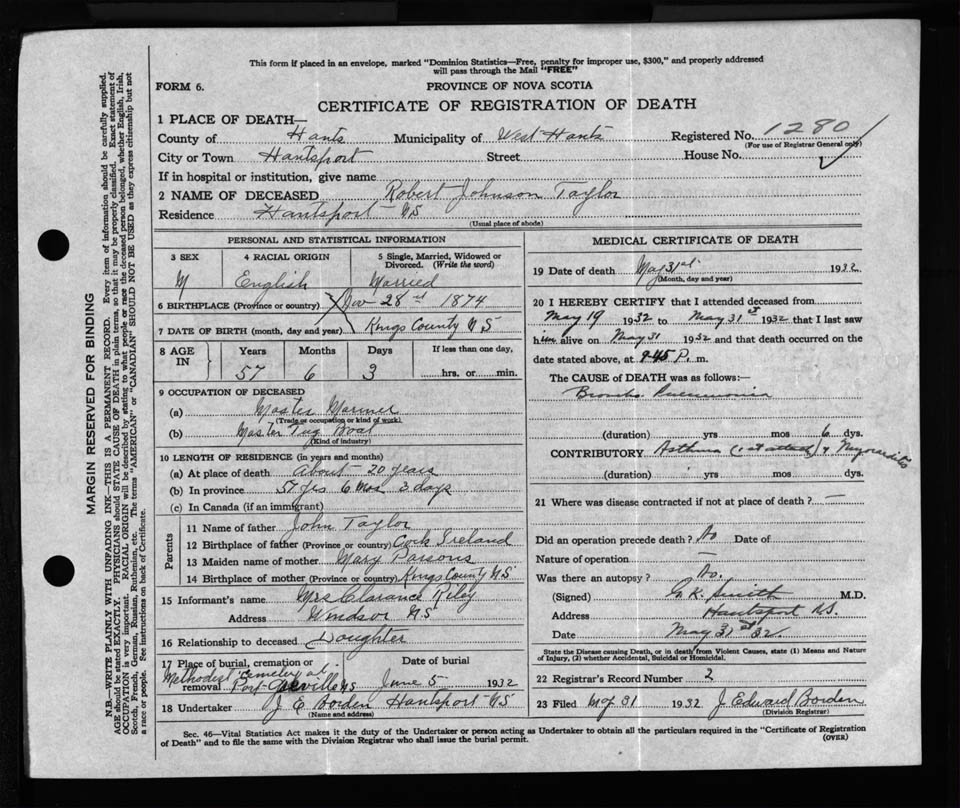 This form if placed in an envelope, marked "Dominion Statistics—Free, penalty for improper use, $300," and properly addressed
will pass through the Mail "FREE"
FORM 6.
PROVINCE OF NOVA SCOTIA
CERTIFICATE OF REGISTRATION OF DEATH
1 PLACE OF DEATH—
County of Hants Municipality of West Hants Registered No. 1280
(For use of Registrar General only)
City or Town Hantsport Street House No.
If in hospital or institution, give name
2 NAME OF DECEASED Robert Johnson Taylor
Residence Hantsport NS
(Usual place of abode)
PERSONAL AND STATISTICAL INFORMATION
3 SEX 4 RACIAL ORIGIN 5 Single, Married, Widowed or
Divorced. (Write the word)
M English Married
6 BIRTHPLACE (Province or country) Nov 28 1874
7 DATE OF BIRTH (month, day and year) Kings County NS
8 AGE IN Years Months Days If less than one day,
57 6 3 hrs. or min.
9 OCCUPATION OF DECEASED
(a) Master Mariner
(Trade or occupation or kind of work)
(b) Master Tug Boat
(Kind of industry)
10 LENGTH OF RESIDENCE (in years and months)
(a) At place of death About 20 years
(b) In province 57 yrs 6 mos 3 days
(c) In Canada (if an immigrant)
Parents
11 Name of father John Taylor
12 Birthplace of father (Province or country) Cork Ireland
13 Maiden name of mother Mary Parsons
14 Birthplace of mother (Province or country) Kings County NS
15 Informant's name Mrs Clarance Riley
Address Windsor NS
16 Relationship to deceased Daughter
17 Place of burial, cremation or Date of burial
Methodist Cemetery at
removal Port NS June 5 1932
18 Undertaker J E Borden Hantsport NS
(Name and address)
MEDICAL CERTIFICATE OF DEATH
19 Date of death May 31st 1932
(Month, day and year)
20 I HEREBY CERTIFY that I attended deceased from
May 19 1932 to May 31st 1932 that I last saw
him alive on May 31 1932 and that death occurred on the
date stated above, at 9.45 P. m.
The CAUSE of DEATH was as follows:—
Broncho Pneumonia
(duration) yrs mos 6 dys.
CONTRIBUTORY Asthma (1st attack) & Myocarditis
(duration) yrs mos dys.
21 Where was disease contracted if not at place of death? —
Did an operation precede death? No Date of
Nature of operation —
Was there an autopsy? No.
(Signed) K. Smith M.D.
Address Hantsport N.S.
Date May 31st 32.
State the Disease causing Death, or in death from Violent Causes, state (1) Means and Nature
of Injury, (2) whether Accidental, Suicidal or Homicidal.
22 Registrar's Record Number 2
23 Filed May 31 1932 J. Edward Borden
(Division Registrar)
Sec. 46—Vital Statistics Act makes it the duty of the Undertaker or person acting as Undertaker to obtain all the particulars required in the "Certificate of Registration
of Death" and to file the same with the Division Registrar who shall issue the burial permit. (OVER)
MARGIN RESERVED FOR BINDING
N.B.—WRITE PLAINLY WITH UNFADING INK—THIS IS A PERMANENT RECORD. Every item of information should be carefully supplied.
AGE should be stated EXACTLY. PHYSICIANS should STATE CAUSE OF DEATH in plain terms, so that it may be properly classified. Exact statement of
OCCUPATION is very important. RACIAL ORIGIN will be described by stating to what people or race the deceased person belonged, whether English, Irish,
Scotch, French, German, Russian, Ruthenian, etc. The terms "AMERICAN" or "CANADIAN" SHOULD NOT BE USED as they express citizenship but not
a race or people. See instructions on back of Certificate.